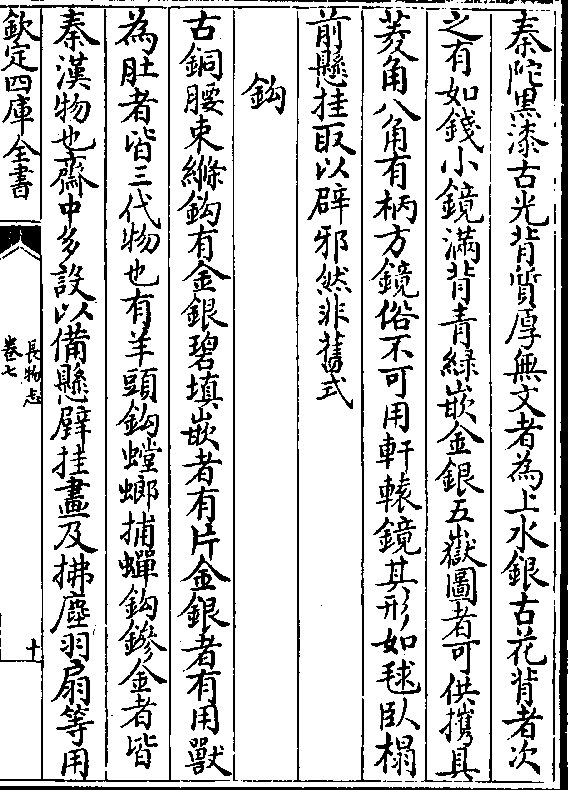 秦陀黑漆古光背質厚無文者為上水銀古花背者次
之有如錢小鏡滿背青綠嵌金銀五嶽圖者可供攜具
菱角八角有柄方鏡俗不可用軒轅鏡其形如毬臥榻
前懸挂取以辟邪然非舊式
鉤
古銅腰束絛鉤有金銀碧填嵌者有片金銀者有用獸
為肚者皆三代物也有羊頭鉤螳螂捕蟬鉤鏒金者皆
秦漢物也齋中多設以備懸壁挂畫及拂塵羽扇等用
欽定四庫全書
長物志
卷七
十